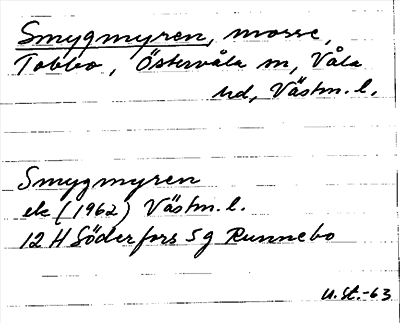 Smygmyren, mosse,
Tobbo, Östervåla sn, Våla
hd, Västm. l.
Smygmyren
ek (1962) Västm. l.
12 H Söderfors 5 g Runnebo
U. St. -63